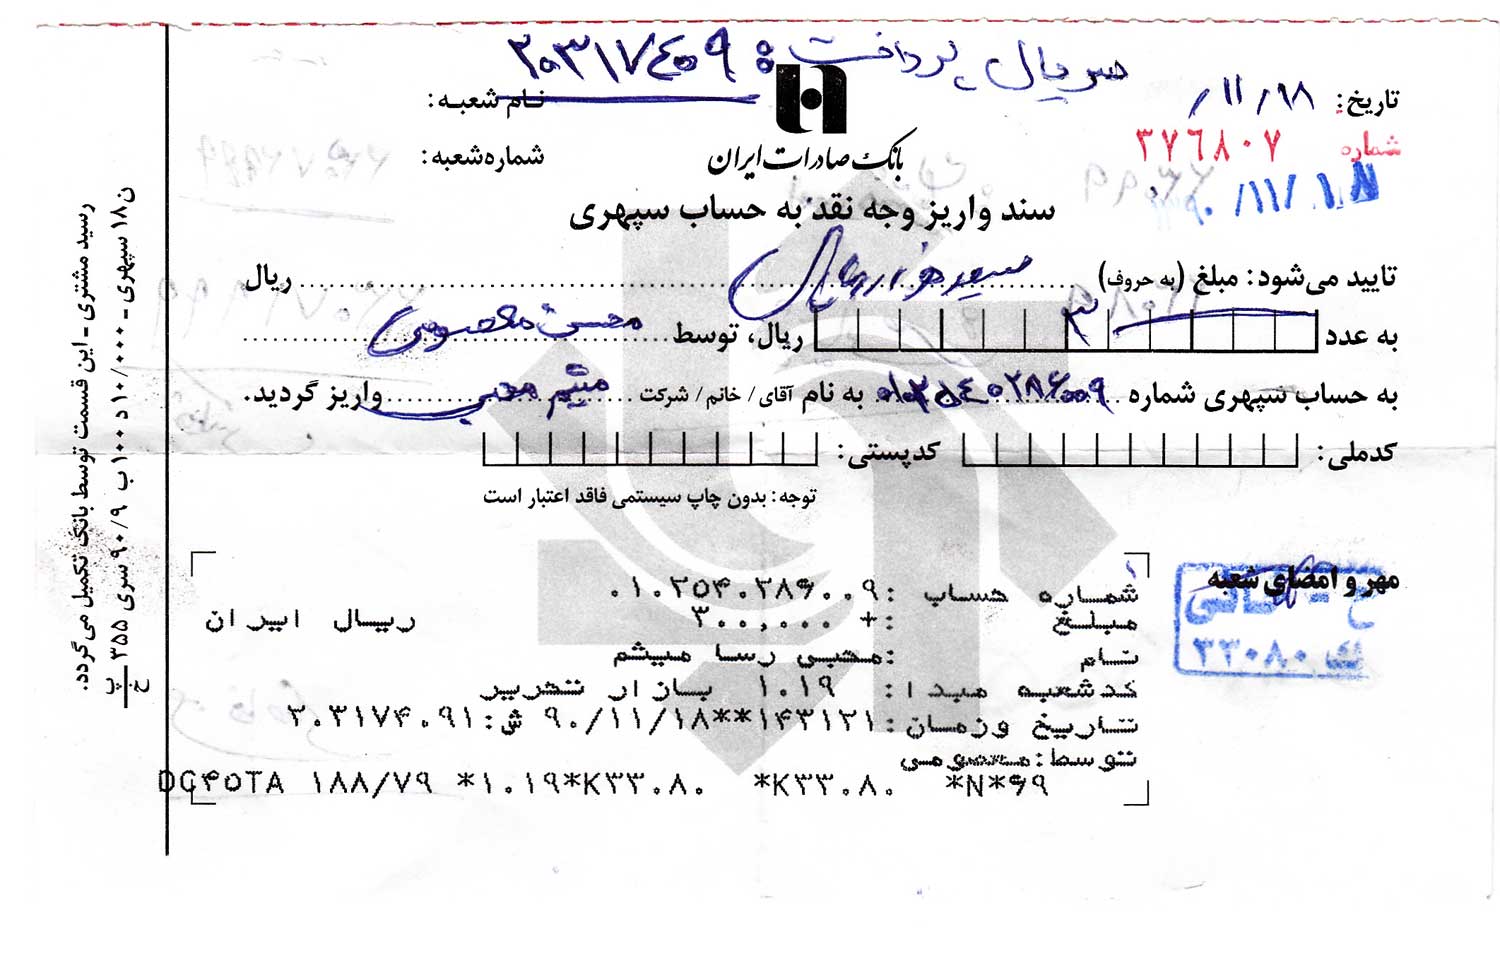 سریال پرداخت: ۲۰۳۱۷۴۰۹
تاریخ: ۱۱/۱۸/
نام شعبه:
شماره ۳۷۶۸۰۷
بانک صادرات ایران
شماره شعبه:
۹۰/۱۱/۱۸
سند واریز وجه نقد به حساب سپهری
تایید می‌شود: مبلغ (به حروف) سیصد هزار ریال ریال
به عدد ۳ ریال، توسط محسن معصومی
به حساب سپهری شماره ۰۱۰۲۵۴۰۲۸۶۰۰۹ به نام آقای / خانم / شرکت میثم محبی واریز گردید.
کدملی: کدپستی:
توجه: بدون چاپ سیستمی فاقد اعتبار است
مهر و امضای شعبه
ک ۳۳۰۸۰
شماره حساب: ۰۱۰۲۵۴۰۲۸۶۰۰۹
مبلغ: +۳۰۰,۰۰۰ ریال ایران
نام: محبی رسا میثم
کدشعبه مبدا: ۱۰۱۹ بازار تجریر
تاریخ وزمان: ۱۴۳۱۲۱**۹۰/۱۱/۱۸ ش: ۲۰۳۱۷۴۰۹۱
توسط: معصومی
DC۴۵TA ۱۸۸/۷۹ *۱۰۱۹*K۳۳۰۸۰ *K۳۳۰۸۰ *N*۶۹
رسید مشتری - این قسمت توسط بانک تکمیل می‌گردد.
ن ۱۸ سپهری - ۱۰/۰۰۰د ۱۰۰ب ۹۰/۹ سری ۳۵۵ پ/خ